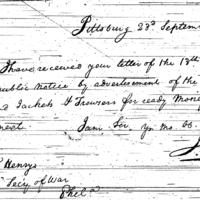 Pittsburg 23d Septem
I have received your letter of the 18th
public notice by advertisement of the
d Jackets & Trowsers for ready Mone
ment. I am Sir, yr. mo. ob.
Henry
Secy of War
Phila